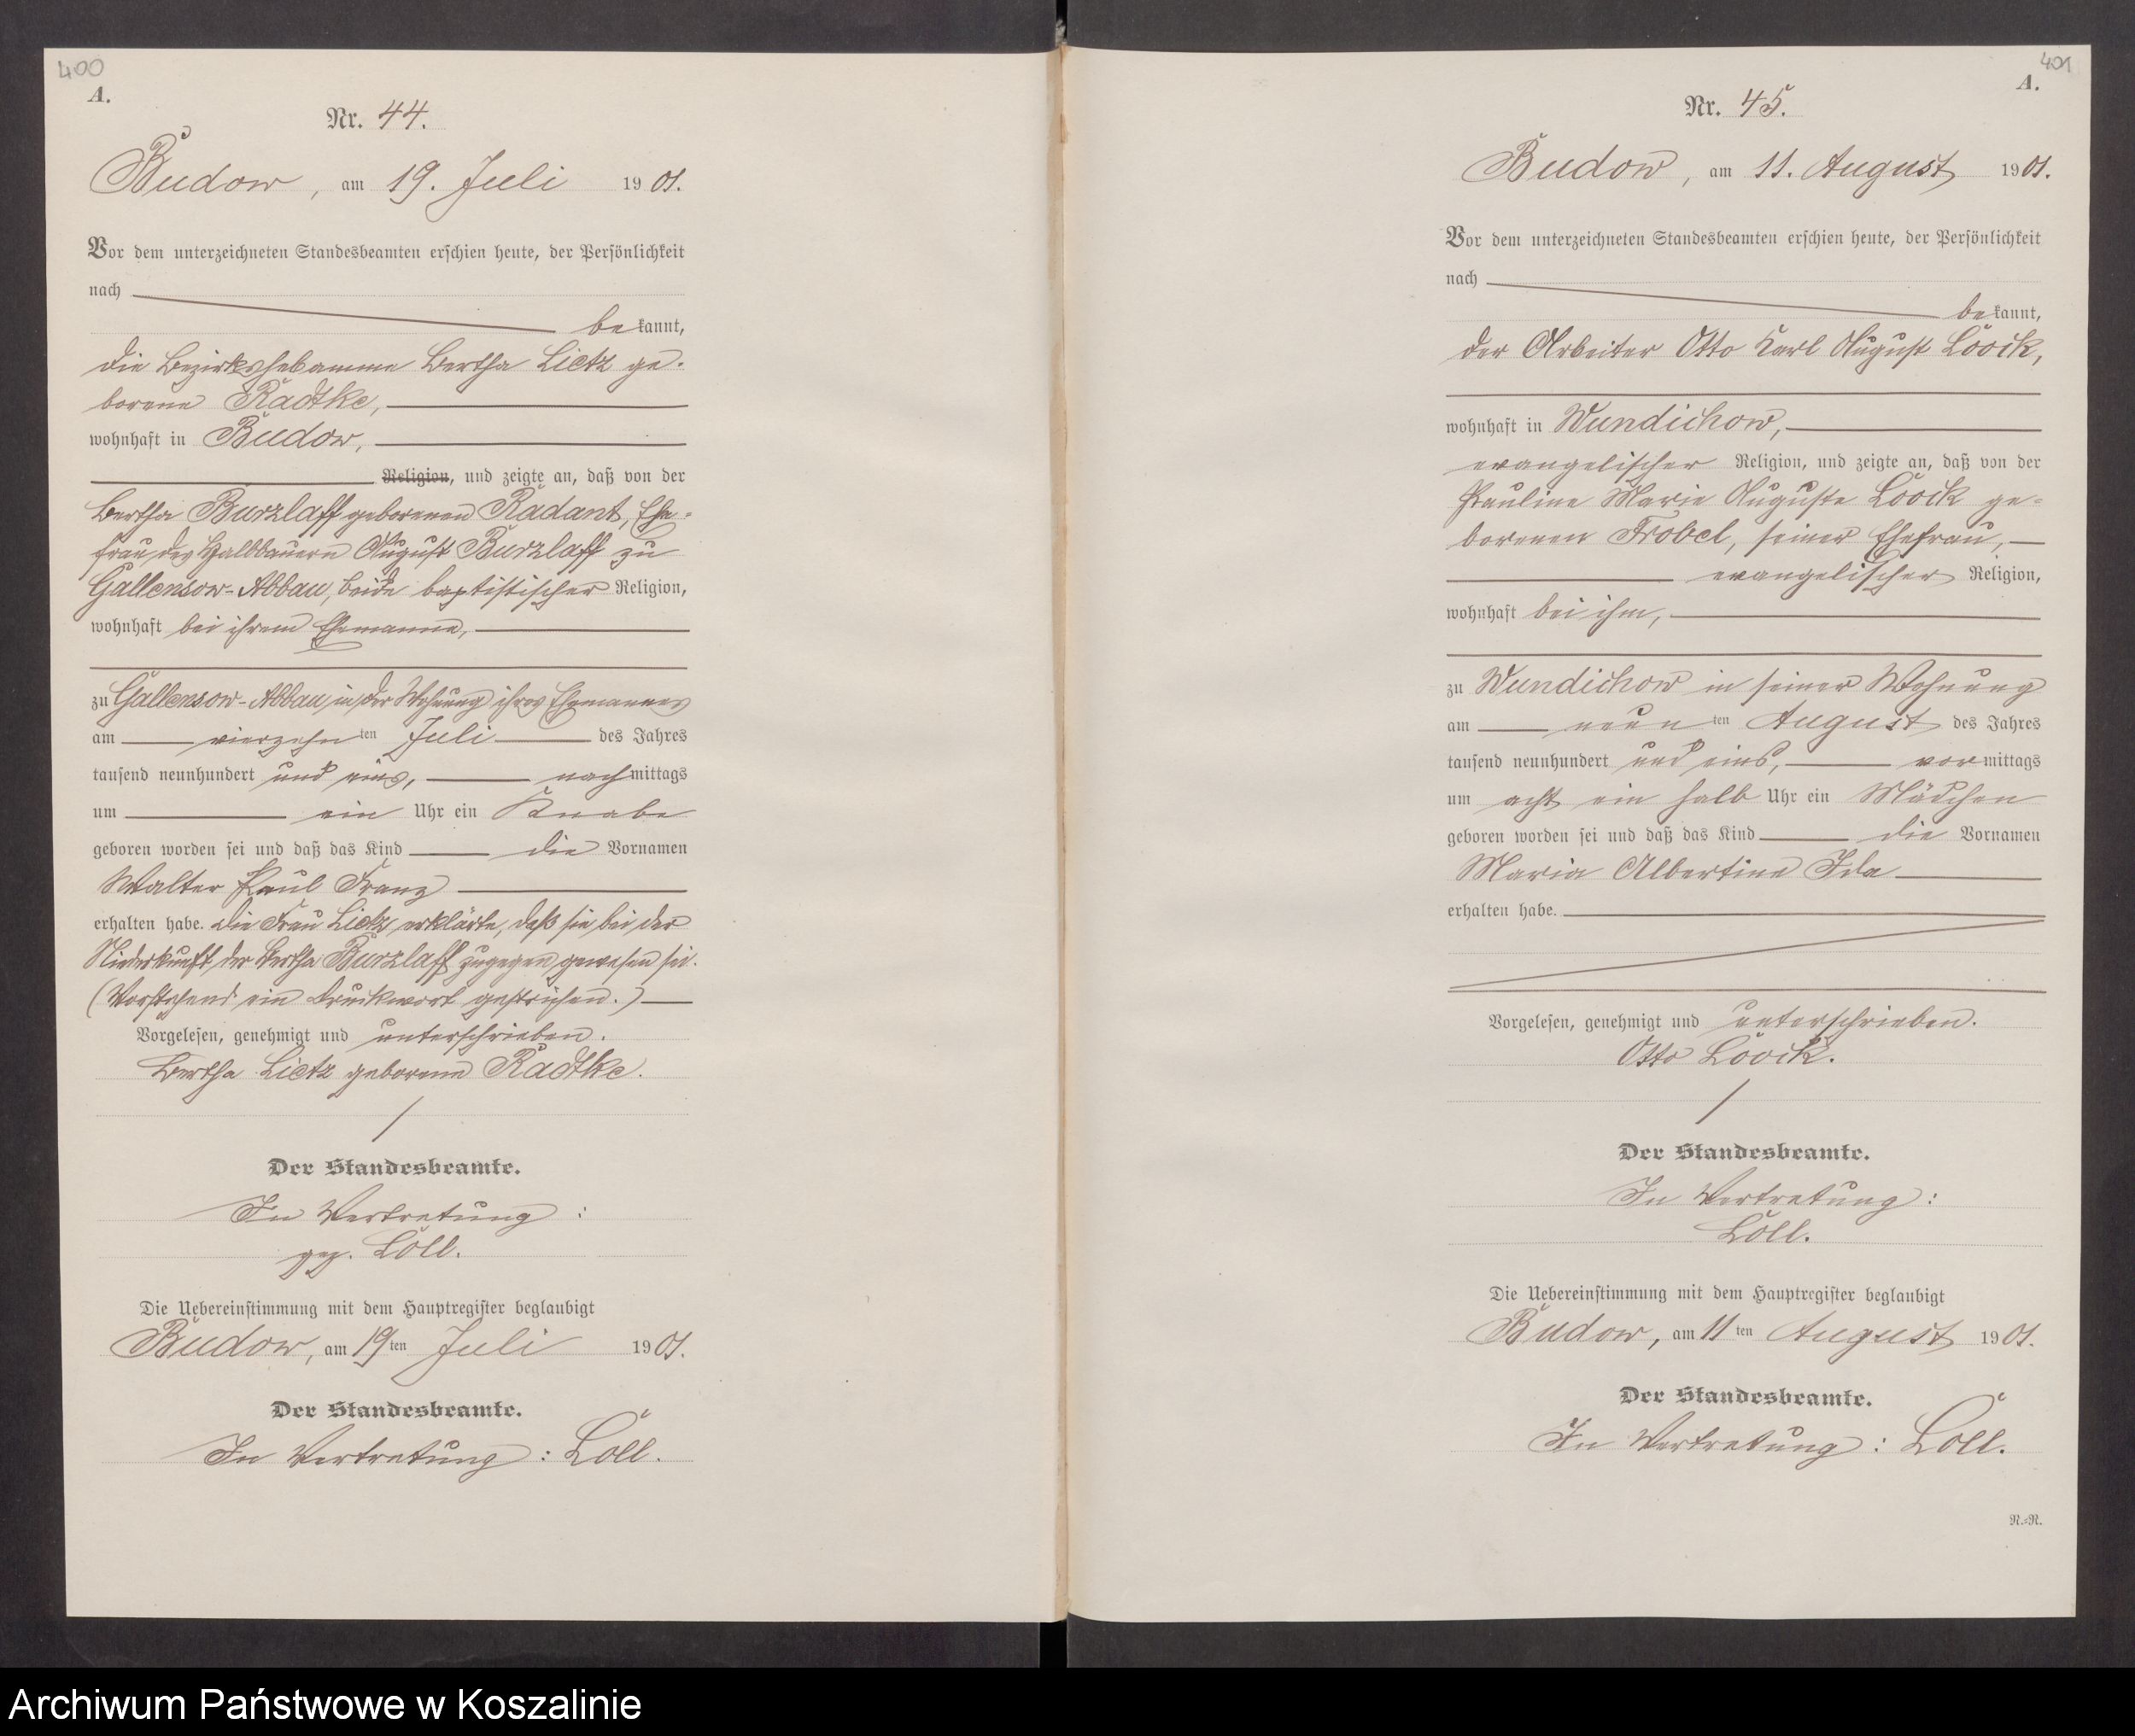 400
A.
Nr. 44.
Budow, am 19. Juli 1901.
Vor dem unterzeichneten Standesbeamten erschien heute, der Persönlichkeit
nach
bekannt,
die Bezirkshebamme Bertha Lietz ge-
borene Radtke,
wohnhaft in Budow,
Religion, und zeigte an, daß von der
Bertha Burzlaff geborenen Radant, Ehe-
frau des Halbbauern August Burzlaff zu
Gallensow-Abbau, beide baptistischer Religion,
wohnhaft bei ihrem Ehemanne,
zu Gallensow-Abbau in der Wohnung ihres Ehemannes
am vierzehnten Juli des Jahres
tausend neunhundert und eins, nachmittags
um ein Uhr ein Knabe
geboren worden sei und daß das Kind die Vornamen
Walter Paul Franz
erhalten habe. Die Frau Lietz erklärte, daß sie bei der
Niederkunft der Bertha Burzlaff zugegen gewesen sei.
(Vorstehend ein Druckwort gestrichen.)
Vorgelesen, genehmigt und unterschrieben.
Bertha Lietz geborene Radtke.
Der Standesbeamte.
In Vertretung:
gez. Löll.
Die Uebereinstimmung mit dem Hauptregister beglaubigt
Budow, am 19ten Juli 1901.
Der Standesbeamte.
In Vertretung: Löll.
401
A.
Nr. 45.
Budow, am 11. August 1901.
Vor dem unterzeichneten Standesbeamten erschien heute, der Persönlichkeit
nach
bekannt,
der Arbeiter Otto Karl August Loock,
wohnhaft in Wundichow,
evangelischer Religion, und zeigte an, daß von der
Pauline Marie Auguste Loock ge-
borenen Frobel, seiner Ehefrau,
evangelischer Religion,
wohnhaft bei ihm,
zu Wundichow in seiner Wohnung
am neunten August des Jahres
tausend neunhundert und eins, vormittags
um acht ein halb Uhr ein Mädchen
geboren worden sei und daß das Kind die Vornamen
Maria Albertine Ida
erhalten habe.
Vorgelesen, genehmigt und unterschrieben.
Otto Loock.
Der Standesbeamte.
In Vertretung:
Löll.
Die Uebereinstimmung mit dem Hauptregister beglaubigt
Budow, am 11ten August 1901.
Der Standesbeamte.
In Vertretung: Löll.
N.-N.
Archiwum Państwowe w Koszalinie